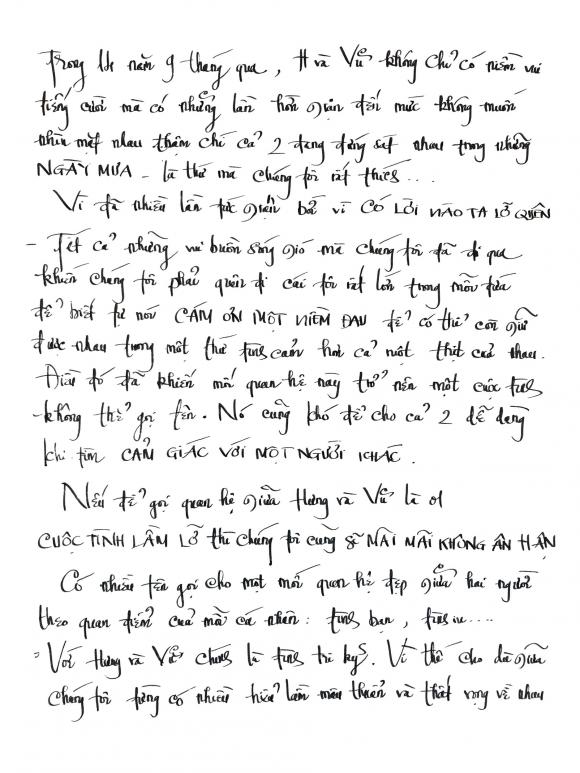 Trong 11 năm 9 tháng qua, H và Vũ không chỉ có niềm vui
tiếng cười mà có những lần hờn giận đến mức không muốn
nhìn mặt nhau thậm chí cả 2 đang đứng sát nhau trong những
NGÀY MƯA - là thứ mà chúng tôi rất thích...
Vì đã nhiều lần tức giận bởi vì CÓ LỖI NÀO TA LỠ QUÊN
- Tất cả những vui buồn sóng gió mà chúng tôi đã đi qua
khiến chúng tôi phải quên đi cái tôi rất lớn trong mỗi đứa
để biết tự nói CÁM ƠN MỘT NIỀM ĐAU để có thể còn giữ
được nhau trong một thứ tình cảm hơn cả ruột thịt của nhau.
Điều đó đã khiến mối quan hệ này trở nên một cuộc tình
không thể gọi tên. Nó cũng khó để cho cả 2 dễ dàng
khi tìm CẢM GIÁC VỚI MỘT NGƯỜI KHÁC.
Nếu để gọi quan hệ giữa Hưng và Vũ là 01
CUỘC TÌNH LẦM LỠ thì chúng tôi cũng sẽ MÃI MÃI KHÔNG ÂN HẬN
Có nhiều tên gọi cho một mối quan hệ đẹp giữa hai người
theo quan điểm của mỗi cá nhân: tình bạn, tình iu....
Với Hưng và Vũ chính là tình tri kỷ. Vì thế cho dù giữa
chúng tôi từng có nhiều hiểu lầm mâu thuẫn và thất vọng về nhau